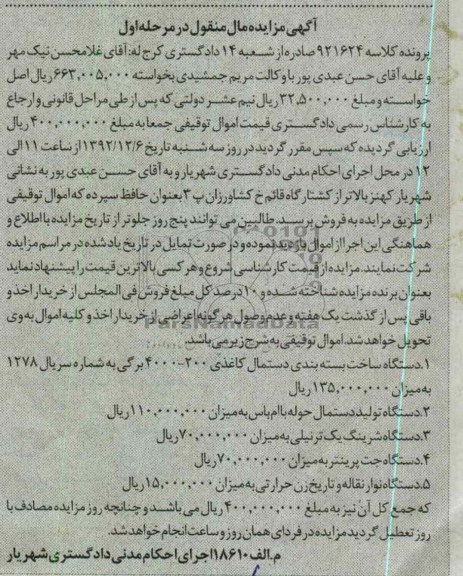 آگهی مزایده مال منقول در مرحله اول
پرونده کلاسه ۹۲۱۶۲۴ صادره از شعبه ۱۴ دادگستری کرج له: آقای غلامحسن نیک مهر
و علیه آقای حسن عبدی پور با وکالت مریم جمشیدی بخواسته ۶۶۳,۰۰۵,۰۰۰ ریال اصل
خواسته و مبلغ ۳۲,۵۰۰,۰۰۰ ریال نیم عشر دولتی که پس از طی مراحل قانونی و ارجاع
به کارشناس رسمی دادگستری قیمت اموال توقیفی جمعا به مبلغ ۴۰۰,۰۰۰,۰۰۰ ریال
ارزیابی گردیده که سپس مقرر گردید در روز سه شنبه تاریخ ۱۳۹۲/۱۲/۶ از ساعت ۱۱ الی
۱۲ در محل اجرای احکام مدنی دادگستری شهریار و به آقای حسن عبدی پور به نشانی
شهریار کهنز بالاتر از کشتارگاه قائم خ کشاورزان پ ۳ بعنوان حافظ سپرده که اموال توقیفی
از طریق مزایده به فروش برسد. طالبین می توانند پنج روز جلوتر از تاریخ مزایده با اطلاع و
هماهنگی این اجرا از اموال بازدید نموده و در صورت تمایل در تاریخ یاد شده در مراسم مزایده
شرکت نمایند. مزایده از قیمت کارشناسی شروع و هر کسی بالاترین قیمت را پیشنهاد نماید
بعنوان برنده مزایده شناخته شده و ۱۰ درصد کل مبلغ فروش فی المجلس از خریدار اخذ و
باقی پس از گذشت یک هفته و عدم وصول هرگونه اعتراضی از خریدار اخذ و کلیه اموال به وی
تحویل خواهد شد. اموال توقیفی به شرح زیر می باشد.
۱.دستگاه ساخت بسته بندی دستمال کاغذی ۲۰۰-۴۰۰۰ برگی به شماره سریال ۱۲۷۸
به میزان ۱۳۵,۰۰۰,۰۰۰ ریال
۲.دستگاه تولید دستمال حوله با ام باس به میزان ۱۱۰,۰۰۰,۰۰۰ ریال
۳.دستگاه شرینگ یک تر نیلی به میزان ۷۰,۰۰۰,۰۰۰ ریال
۴.دستگاه جت پرینتر به میزان ۷۰,۰۰۰,۰۰۰ ریال
۵.دستگاه نوار نقاله و تاریخ زن حرارتی به میزان ۱۵,۰۰۰,۰۰۰ ریال
که جمع کل آن نیز به مبلغ ۴۰۰,۰۰۰,۰۰۰ ریال می باشد و چنانچه روز مزایده مصادف با
روز تعطیل گردید مزایده در فردای همان روز و ساعت انجام خواهد شد.
م.الف ۱۸۶۱۰ اجرای احکام مدنی دادگستری شهریار
ParsNamadData